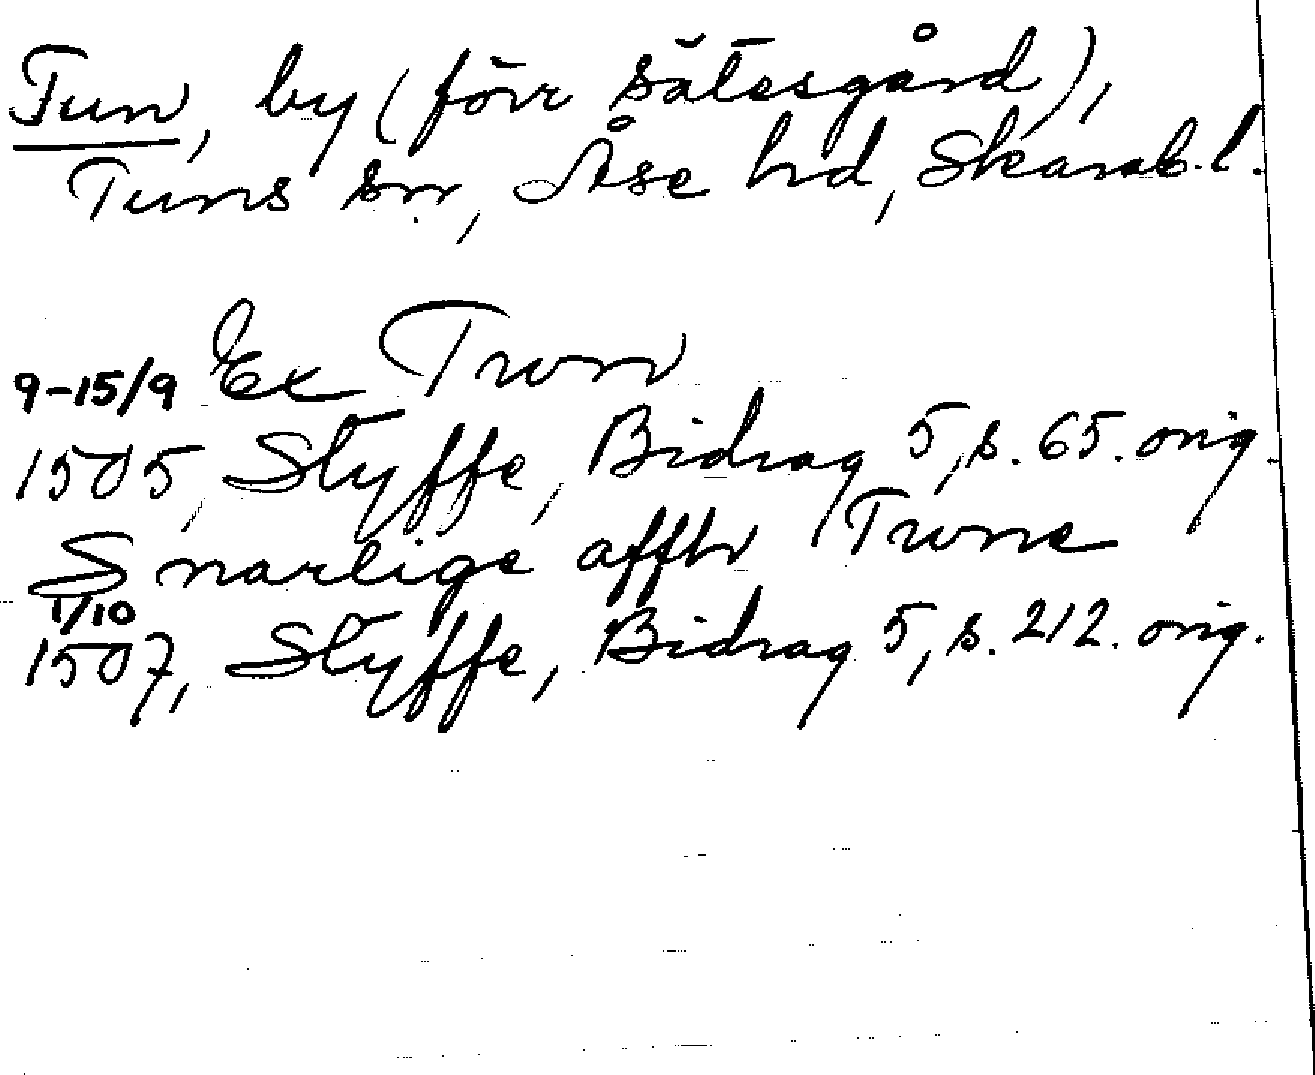 Tun, by (förr sätesgård),
Tuns sn, Åse hd, Skarab. l.
Ex Twn
9-15/9
1505, Styffe, Bidrag 5, s. 65. orig.
Snarlige affth Twne
1/10
1507, Styffe, Bidrag 5, s. 212. orig.